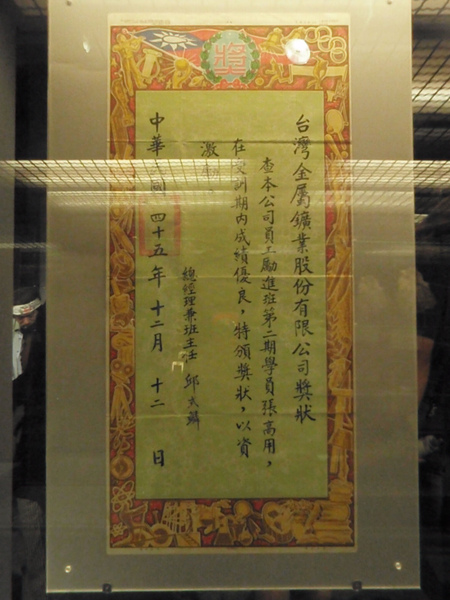 獎
台灣金屬鑛業股份有限公司獎狀
查本公司員工勵進班第二期學員張高用，
在受訓期內成績優良，特頒獎狀，以資
激勵
總經理兼班主任 邱
中華民國四十五年十二月十二日